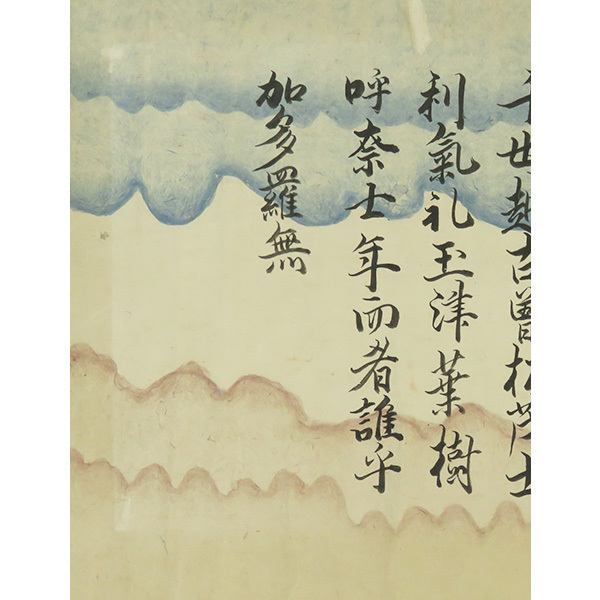 千世越古曽松乃士
利氣礼玉津葉樹
呼奈士年而者誰乎
加多羅無